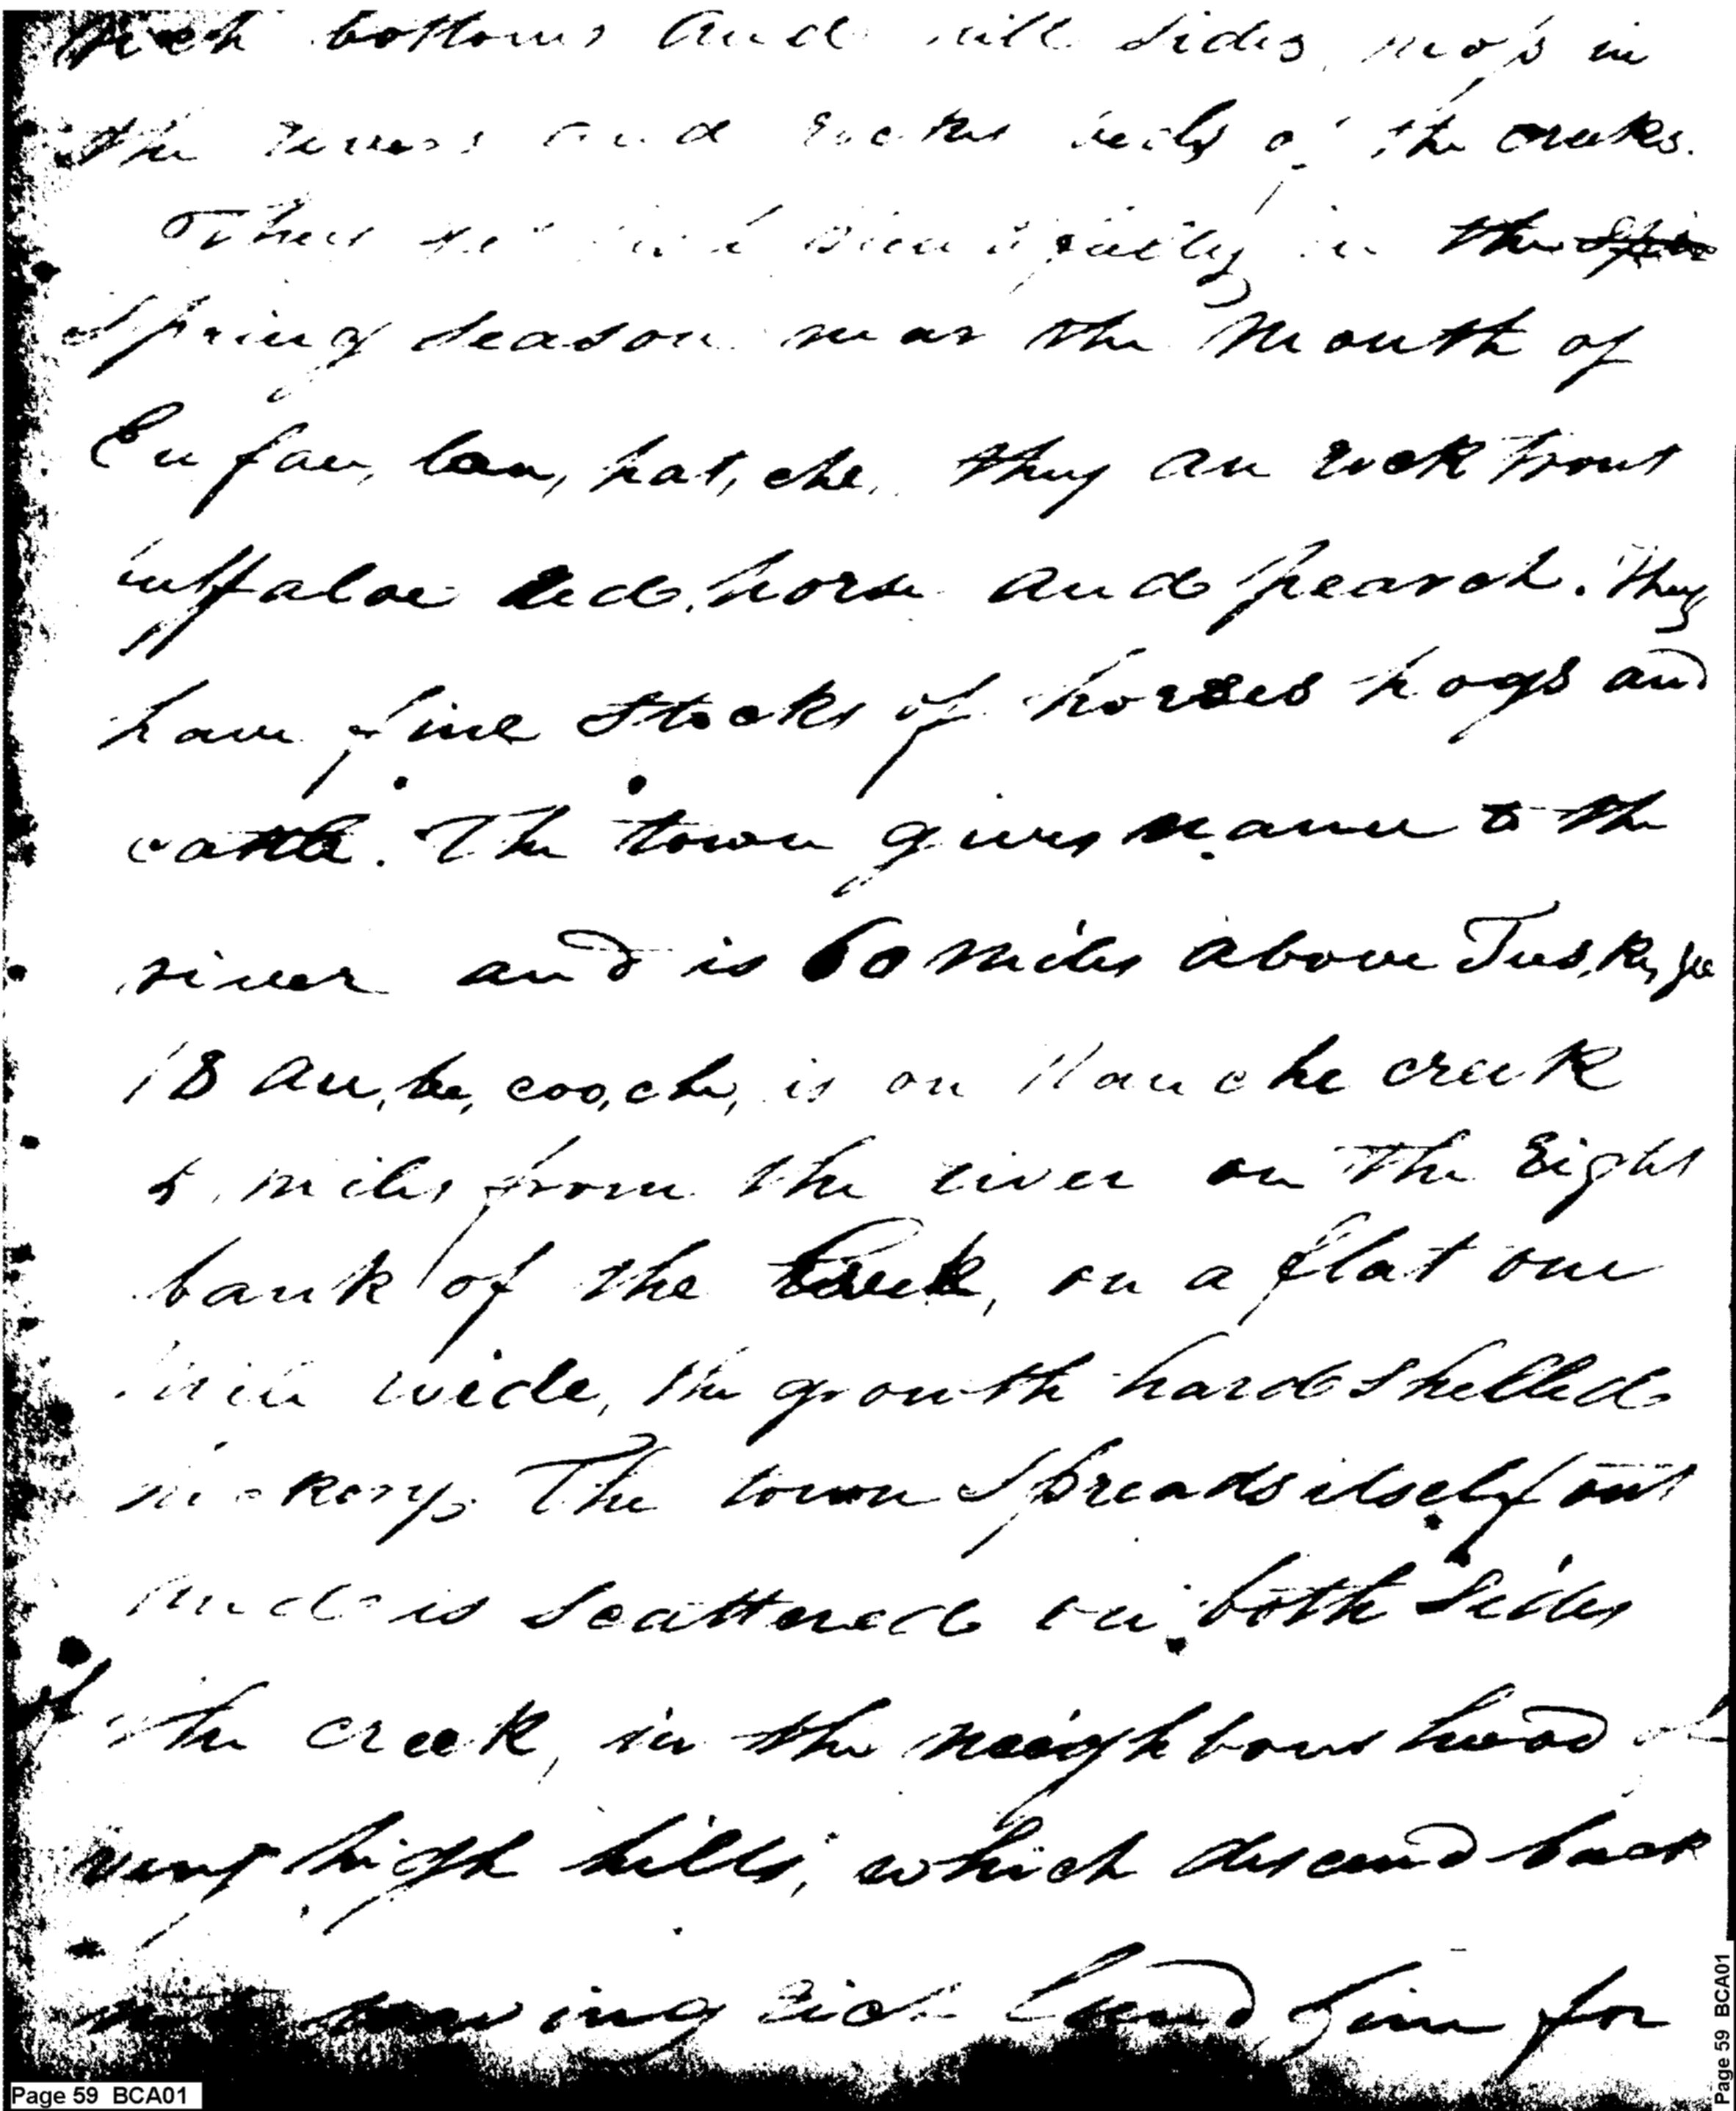 rich bottoms and hill sides, moss in
the rivers and rocky beds of the creeks.
They fish in the Spr
Spring season near the mouth of
Eu fau, lau, hat, che, they are rock trout
buffaloe red horse and pearch. They
have fine stocks of horses hogs and
cattle. The town gives name to the
river and is 60 miles above Tus,ke,gee
18 Au,be,coo,che, is on Nauche creek
5 miles from the river on the right
bank of the Creek, on a flat one
mile wide, the growth hard shelled
hickory. The town spreads itself out
and is scattered on both sides
of the creek, in the neighbourhood of
very high hills, which descend back
waving rich land fine for
Page 59 BCA01
Page 59 BCA01